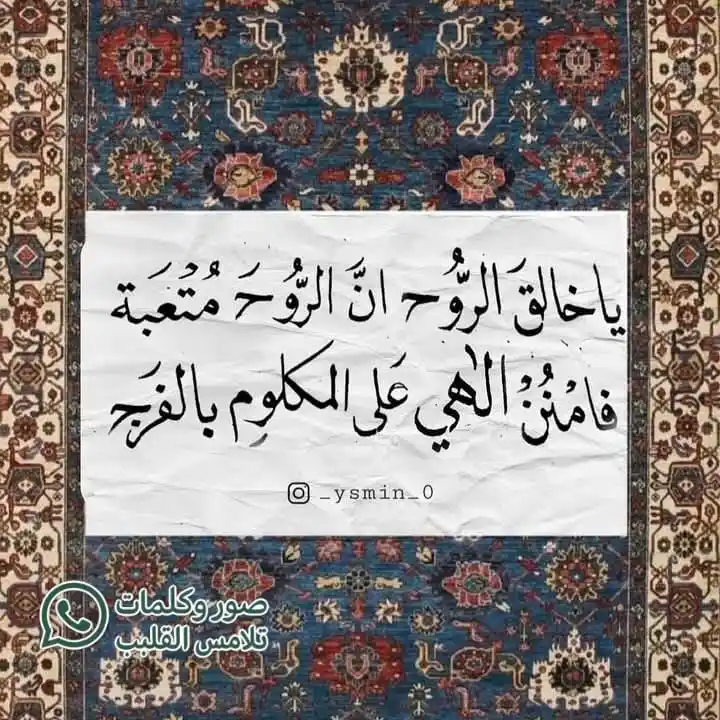 ياخالقَ الرُّوح انَّ الرُّوحَ مُتْعَبَة
فامْنُنْ الٰهي عَلى المكلومِ بالفَرَج
_ysmin_0
صور وكلمات
تلامس القلب